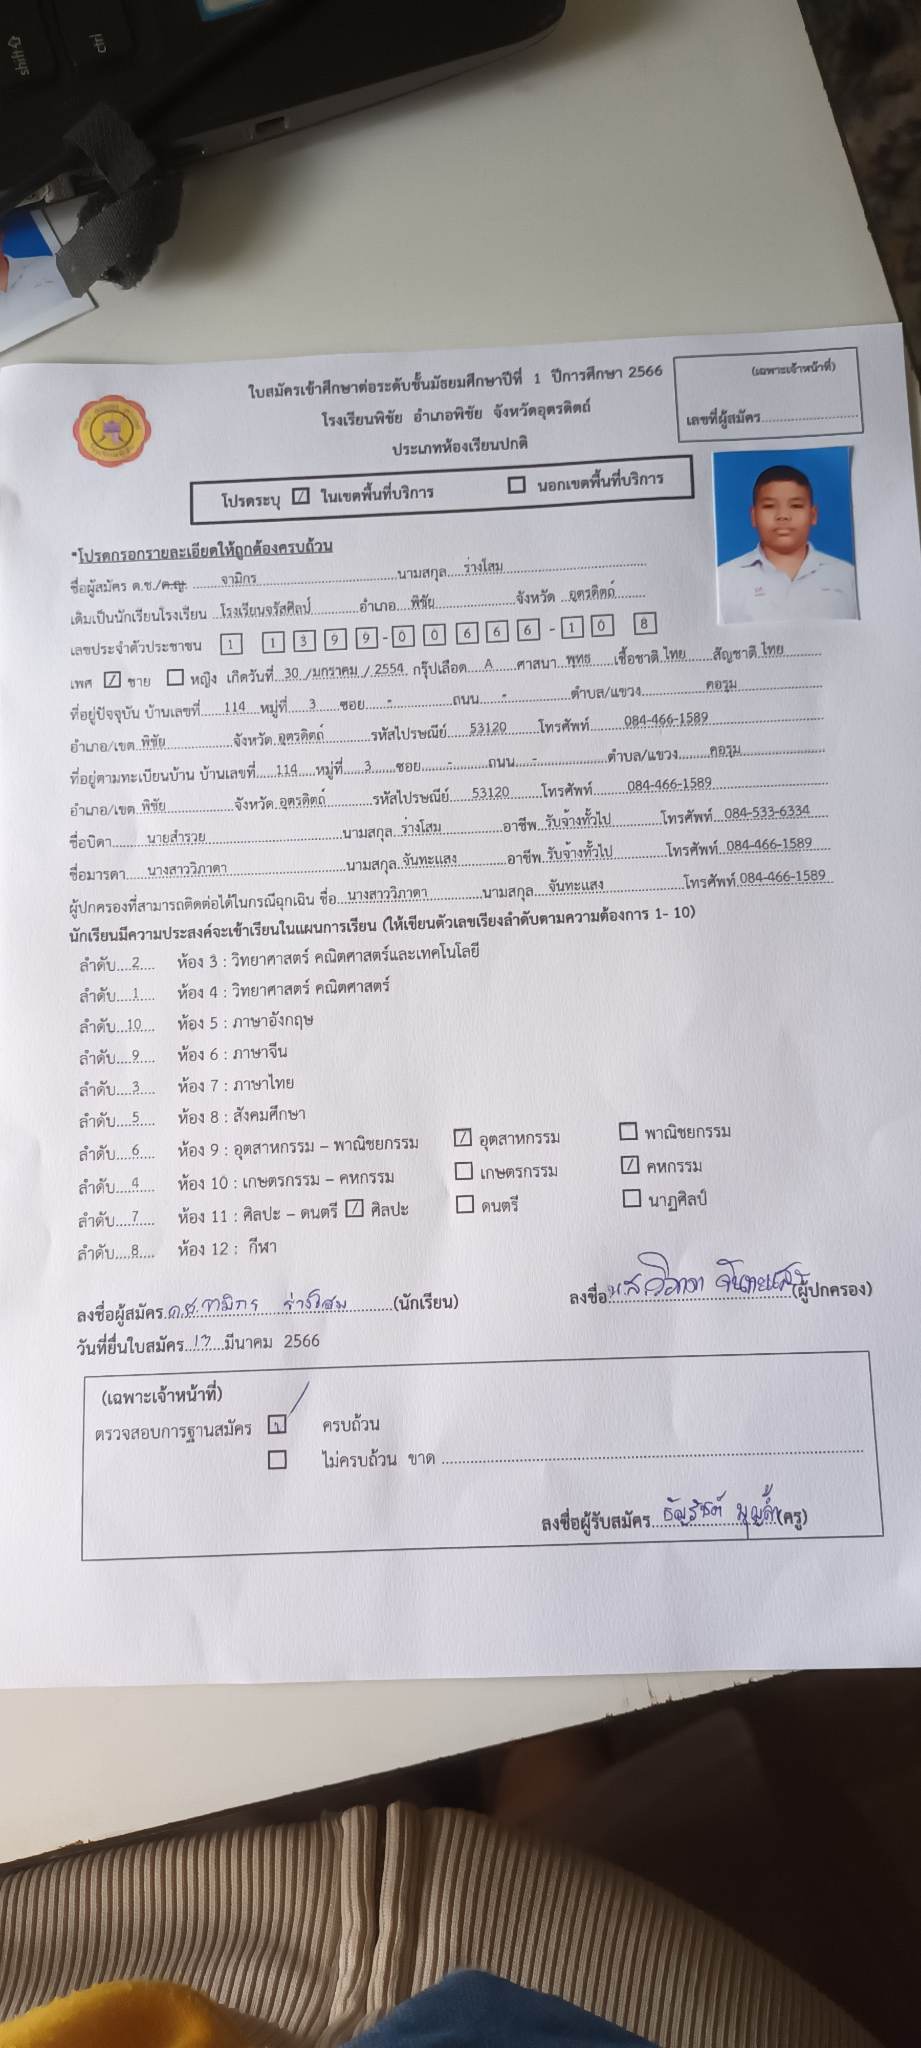 shift
ctrl
ใบสมัครเข้าศึกษาต่อระดับชั้นมัธยมศึกษาปีที่ 1 ปีการศึกษา 2566
(เฉพาะเจ้าหน้าที่)
โรงเรียนพิชัย อำเภอพิชัย จังหวัดอุตรดิตถ์
เลขที่ผู้สมัคร
ประเภทห้องเรียนปกติ
โปรดระบุ / ในเขตพื้นที่บริการ นอกเขตพื้นที่บริการ
*โปรดกรอกรายละเอียดให้ถูกต้องครบถ้วน
ชื่อผู้สมัคร ด.ช./ด.ญ. จามิกร นามสกุล ร่างโสม
เดิมเป็นนักเรียนโรงเรียน โรงเรียนจรัสศิลป์ อำเภอ พิชัย จังหวัด อุตรดิตถ์
เลขประจำตัวประชาชน 1 1 3 9 9 - 0 0 6 6 6 - 1 0 8
เพศ / ชาย หญิง เกิดวันที่ 30 /มกราคม / 2554 กรุ๊ปเลือด A ศาสนา พุทธ เชื้อชาติ ไทย สัญชาติ ไทย
ที่อยู่ปัจจุบัน บ้านเลขที่ 114 หมู่ที่ 3 ซอย - ถนน - ตำบล/แขวง คอรุม
อำเภอ/เขต พิชัย จังหวัด อุตรดิตถ์ รหัสไปรษณีย์ 53120 โทรศัพท์ 084-466-1589
ที่อยู่ตามทะเบียนบ้าน บ้านเลขที่ 114 หมู่ที่ 3 ซอย - ถนน - ตำบล/แขวง คอรุม
อำเภอ/เขต พิชัย จังหวัด อุตรดิตถ์ รหัสไปรษณีย์ 53120 โทรศัพท์ 084-466-1589
ชื่อบิดา นายสำรวย นามสกุล ร่างโสม อาชีพ รับจ้างทั่วไป โทรศัพท์ 084-533-6334
ชื่อมารดา นางสาววิภาดา นามสกุล จันทะแสง อาชีพ รับจ้างทั่วไป โทรศัพท์ 084-466-1589
ผู้ปกครองที่สามารถติดต่อได้ในกรณีฉุกเฉิน ชื่อ นางสาววิภาดา นามสกุล จันทะแสง โทรศัพท์ 084-466-1589
นักเรียนมีความประสงค์จะเข้าเรียนในแผนการเรียน (ให้เขียนตัวเลขเรียงลำดับตามความต้องการ 1- 10)
ลำดับ 2 ห้อง 3 : วิทยาศาสตร์ คณิตศาสตร์และเทคโนโลยี
ลำดับ 1 ห้อง 4 : วิทยาศาสตร์ คณิตศาสตร์
ลำดับ 10 ห้อง 5 : ภาษาอังกฤษ
ลำดับ 9 ห้อง 6 : ภาษาจีน
ลำดับ 3 ห้อง 7 : ภาษาไทย
ลำดับ 5 ห้อง 8 : สังคมศึกษา
ลำดับ 6 ห้อง 9 : อุตสาหกรรม – พาณิชยกรรม / อุตสาหกรรม พาณิชยกรรม
ลำดับ 4 ห้อง 10 : เกษตรกรรม – คหกรรม เกษตรกรรม / คหกรรม
ลำดับ 7 ห้อง 11 : ศิลปะ – ดนตรี / ศิลปะ ดนตรี นาฏศิลป์
ลำดับ 8 ห้อง 12 : กีฬา
ลงชื่อผู้สมัคร ด.ช. จามิกร ร่างโสม (นักเรียน) ลงชื่อ น.ส. วิภาดา จันทะแสง (ผู้ปกครอง)
วันที่ยื่นใบสมัคร มีนาคม 2566
(เฉพาะเจ้าหน้าที่)
ตรวจสอบการฐานสมัคร / ครบถ้วน
ไม่ครบถ้วน ขาด
ลงชื่อผู้รับสมัคร (ครู)